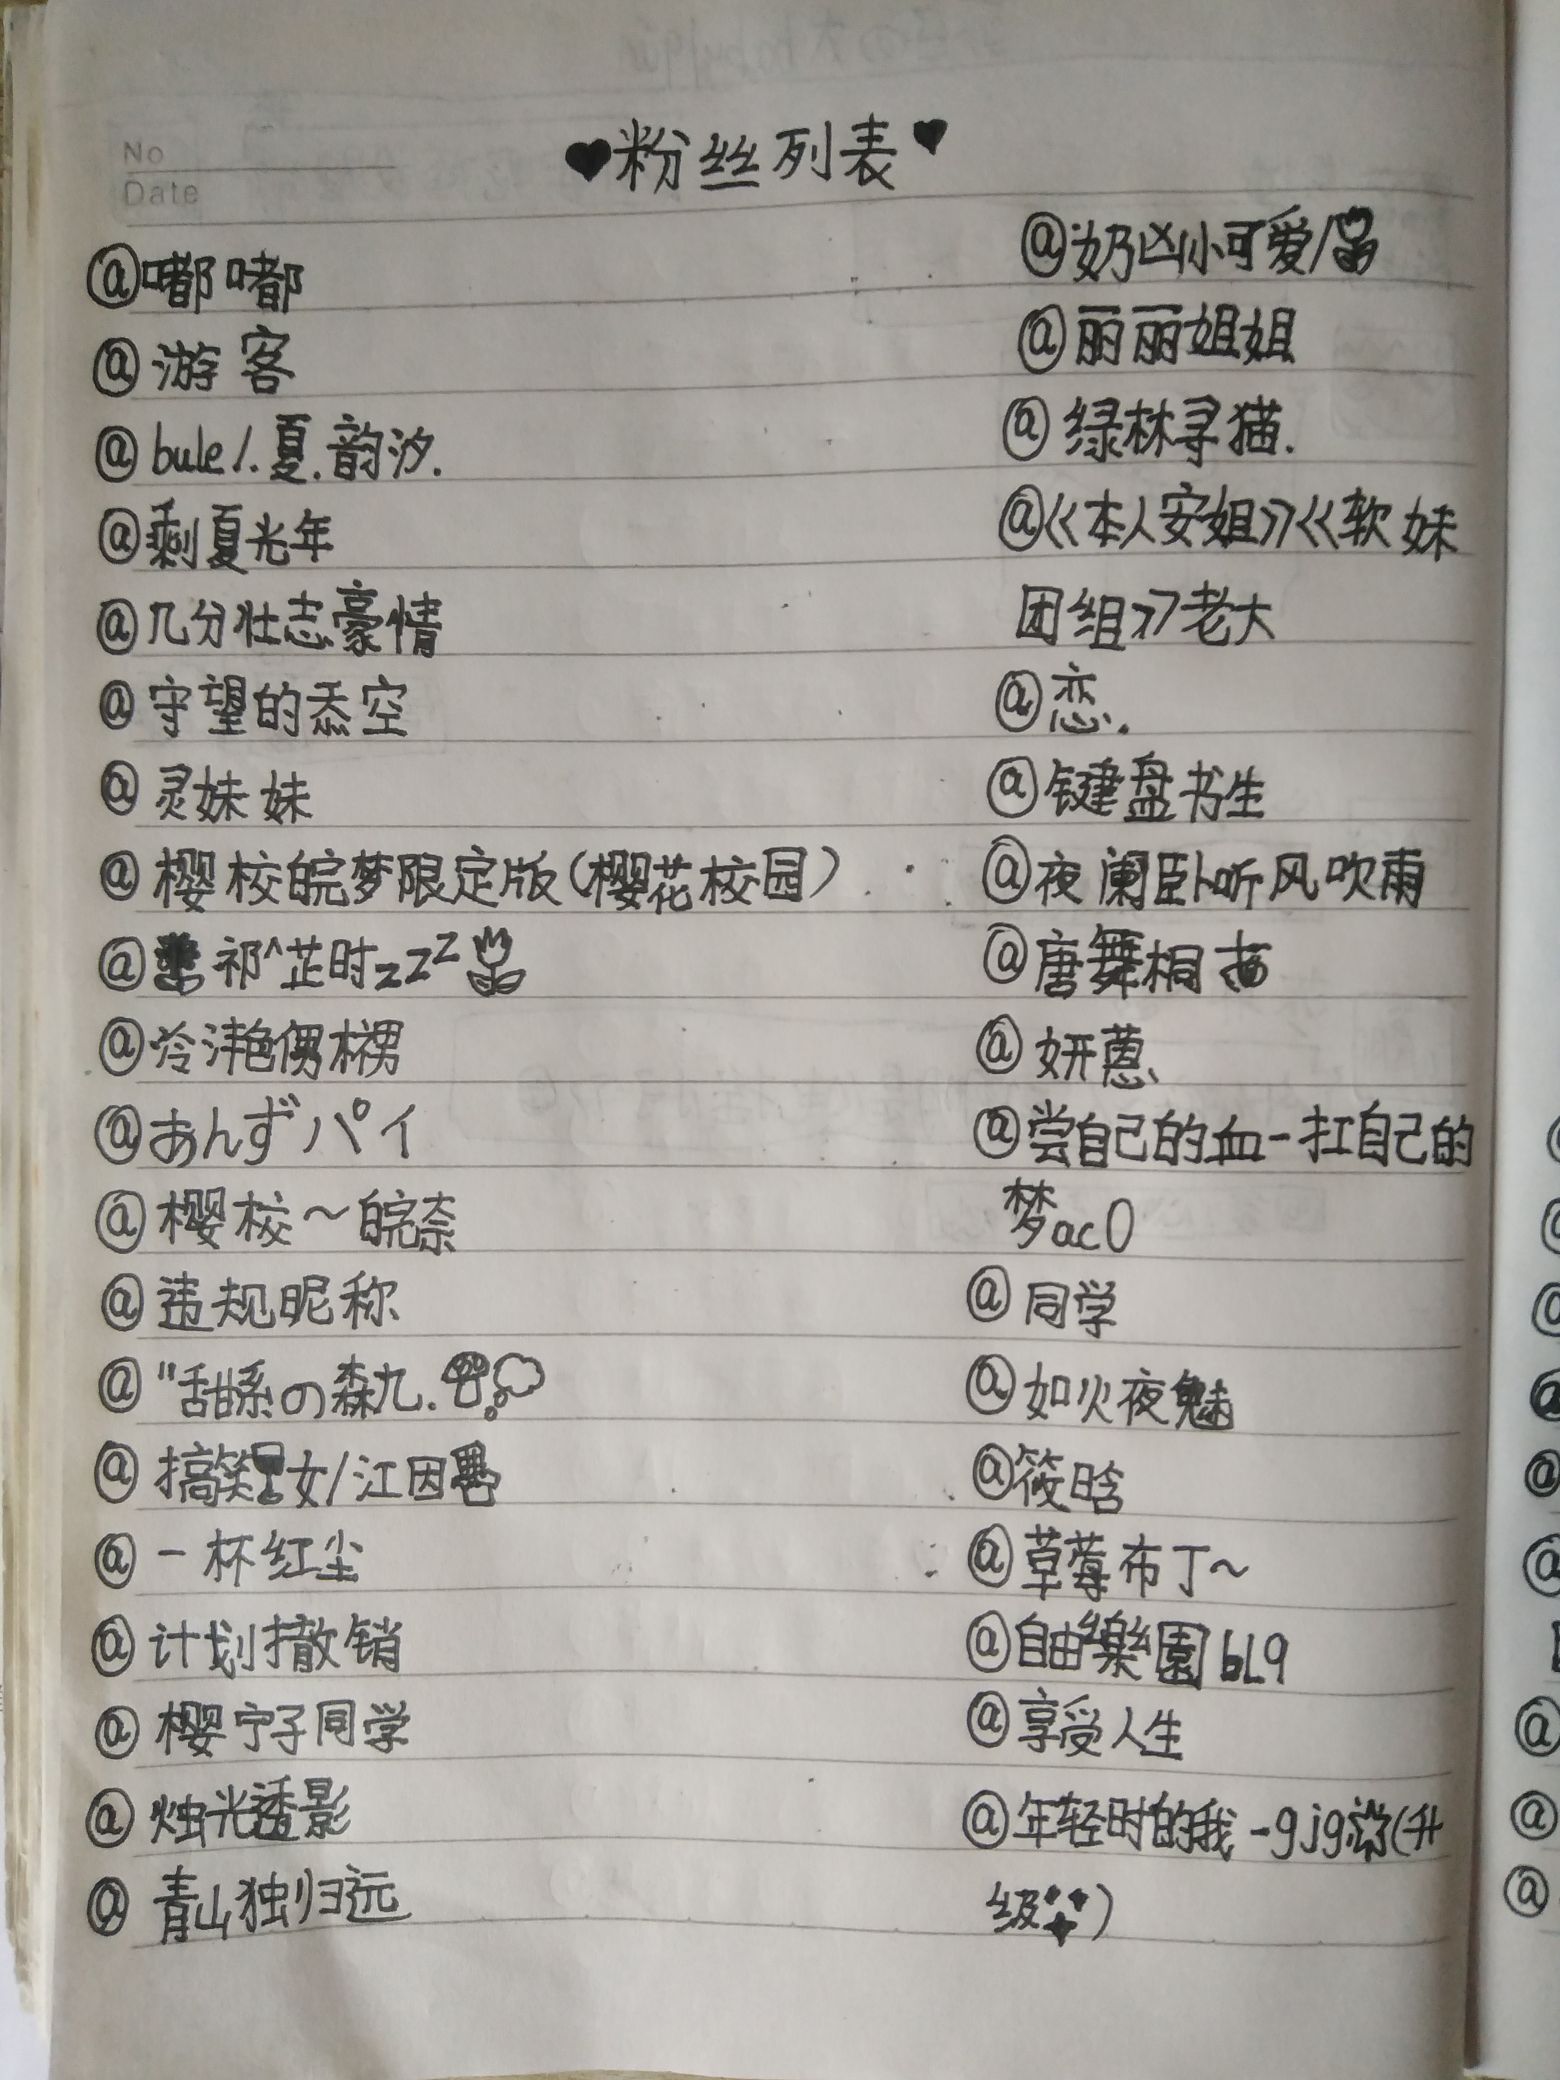 No
Date
♥粉丝列表♥
@嘟嘟
@游客
@bule/.夏.韵汐.
@剩夏光年
@几分壮志豪情
@守望的忝空
@灵妹妹
@樱校皖梦限定版(樱花校园)
@祁^芷时zzZ
@泠沣艳
@あんずパイ
@樱校～皖奈
@违规昵称
@"甜系の森九.
@搞笑女/江因
@一杯红尘
@计划撤销
@樱宁子同学
@烛光透影
@青山独归远
@奶凶小可爱/
@丽丽姐姐
@绿林寻猫.
@《本人安姐》《软妹
团组》老大
@恋.
@键盘书生
@夜阑卧听风吹雨
@唐舞桐
@妍蒽
@尝自己的血-扛自己的
梦ac0
@同学
@如火夜魅
@筱晗
@草莓布丁~
@自由樂園bL9
@享受人生
@年轻时的我-gjg(升
级)